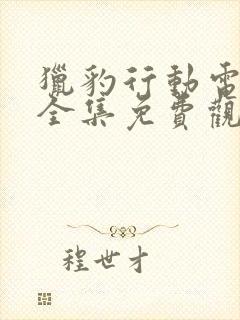 獵豹行動電
全集免費觀
程世才